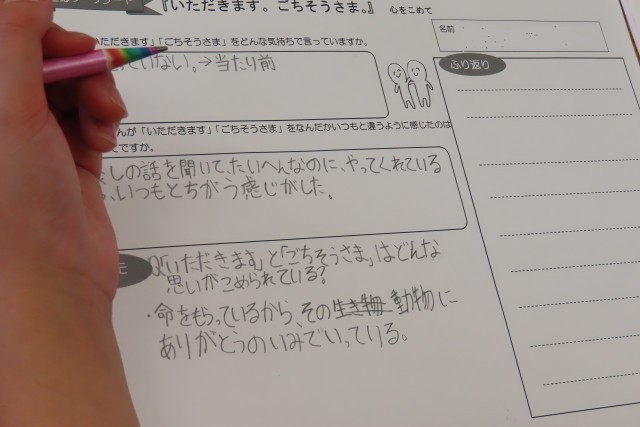 『いただきます。ごちそうさま。』 心をこめて
名前
いただきます」「ごちそうさま」をどんな気持ちで言っていますか。
ていない。→当たり前
ふり返り
んが「いただきます」「ごちそうさま」をなんだかいつもと違うように感じたのは
てですか。
しの話を聞いて、たいへんなのに、やってくれている
、いつもとちがう感じがした。
Q「いただきます」と「ごちそうさま」はどんな
思いがこめられている?
・命をもらっているから、その生き物動物に
ありがとうのいみでいっている。